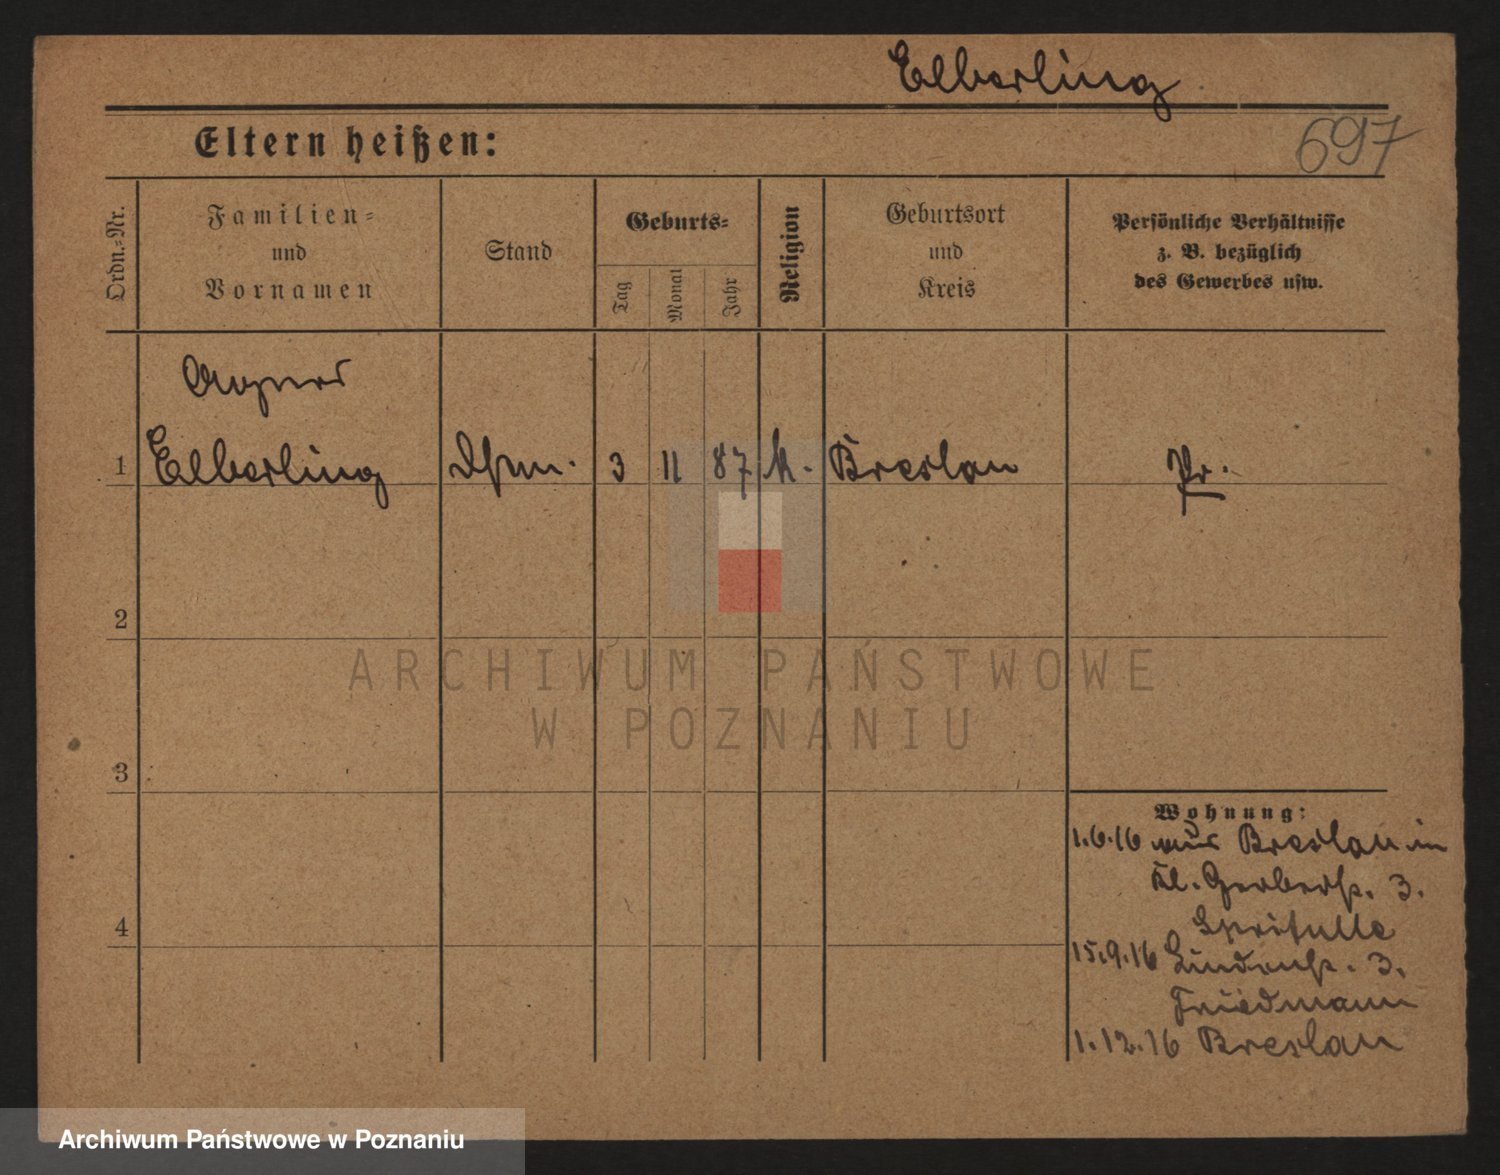 Elberling
697
Eltern heißen:
Ordn.-Nr.
Familien-
und
Vornamen
Stand
Geburts-
Tag
Monat
Jahr
Religion
Geburtsort
und
Kreis
Persönliche Verhältnisse
z. B. bezüglich
des Gewerbes usw.
Agnes
1 Elberling 3 11 87 k. Breslau Pr.
2
ARCHIWUM PAŃSTWOWE
W POZNANIU
3
Wohnung:
1.6.16 aus Breslau in
Kl. Gerberstr. 3.
4
15.9.16 Lindenstr. 3.
Friedmann
1.12.16 Breslau
Archiwum Państwowe w Poznaniu